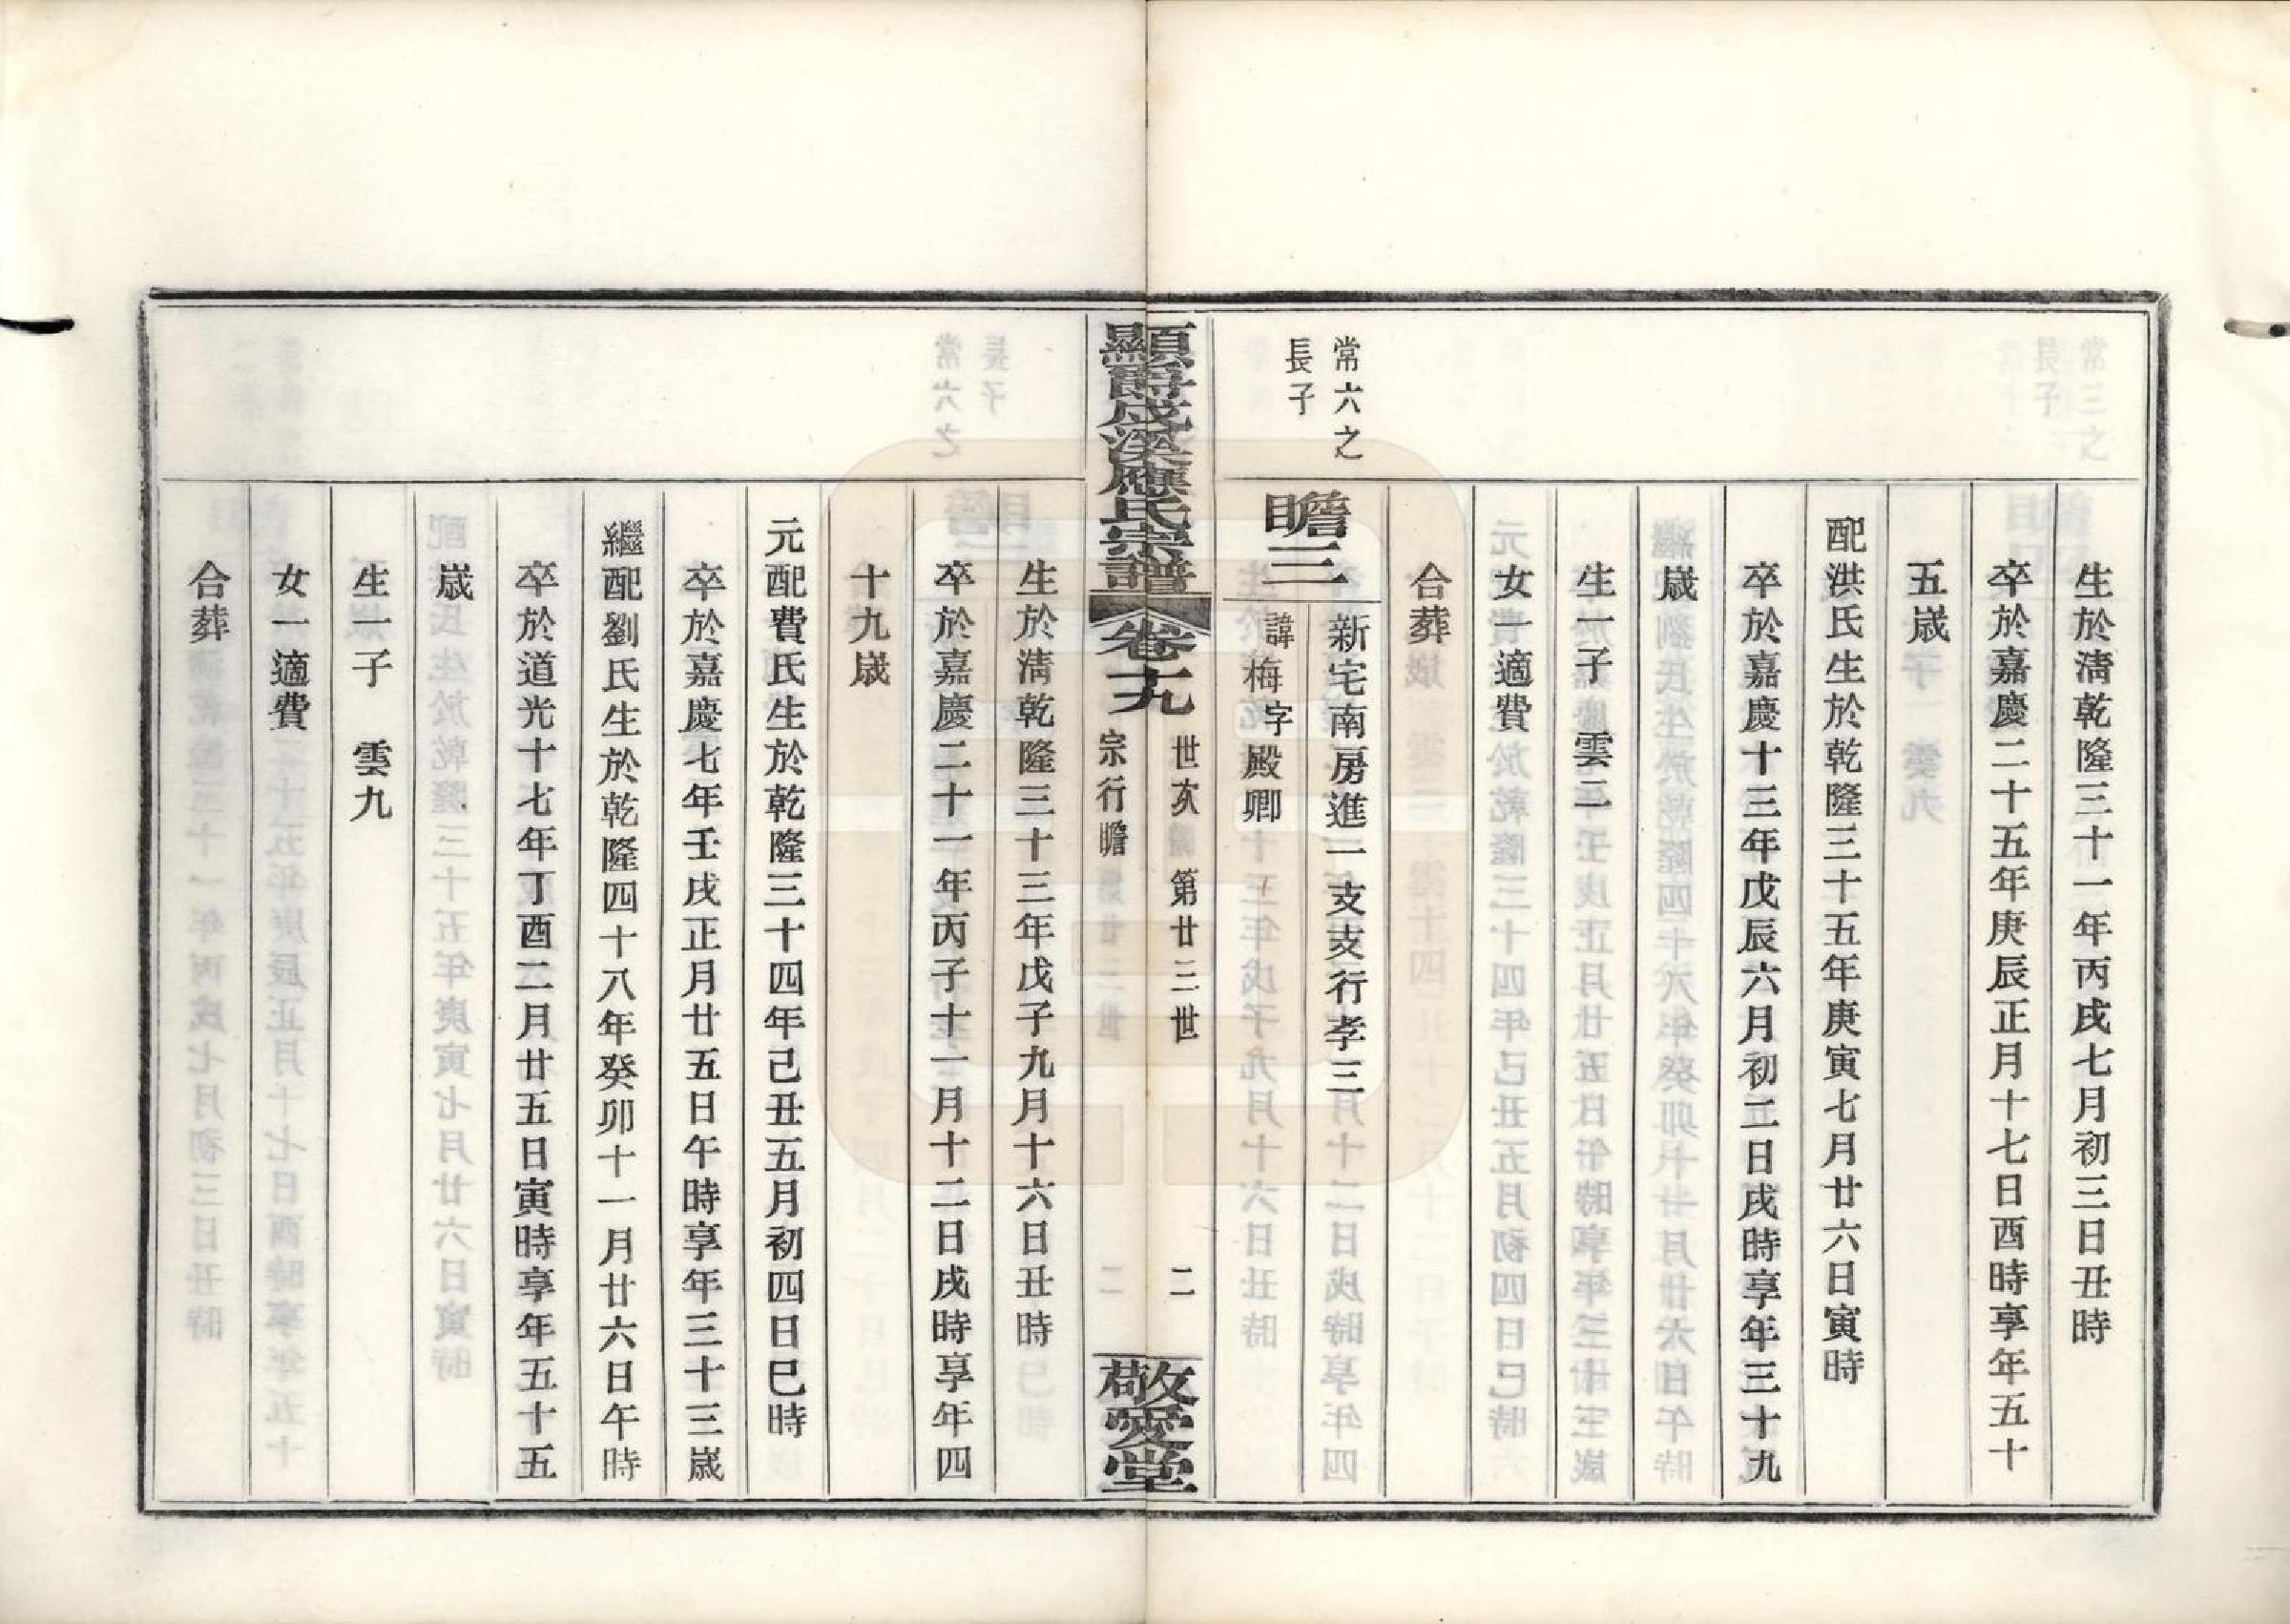 生於淸乾隆三十一年丙戌七月初三日丑時
卒於嘉慶二十五年庚辰正月十七日酉時享年五十
五歲
配洪氏生於乾隆三十五年庚寅七月廿六日寅時
卒於嘉慶十三年戊辰六月初二日戌時享年三十九
歲
生一子 雲二
女一適費
合葬
常六之
長子
瞻三
新宅南房進一支支行孝三
諱梅字殿卿
顯爵戍溪應氏宗譜
卷十九
世次 第廿三世
宗行瞻
二
敬愛堂
生於淸乾隆三十三年戊子九月十六日丑時
卒於嘉慶二十一年丙子十一月十二日戌時享年四
十九歲
元配費氏生於乾隆三十四年己丑五月初四日巳時
卒於嘉慶七年壬戌正月廿五日午時享年三十三歲
繼配劉氏生於乾隆四十八年癸卯十一月廿六日午時
卒於道光十七年丁酉二月廿五日寅時享年五十五
歲
生一子 雲九
女一適費
合葬